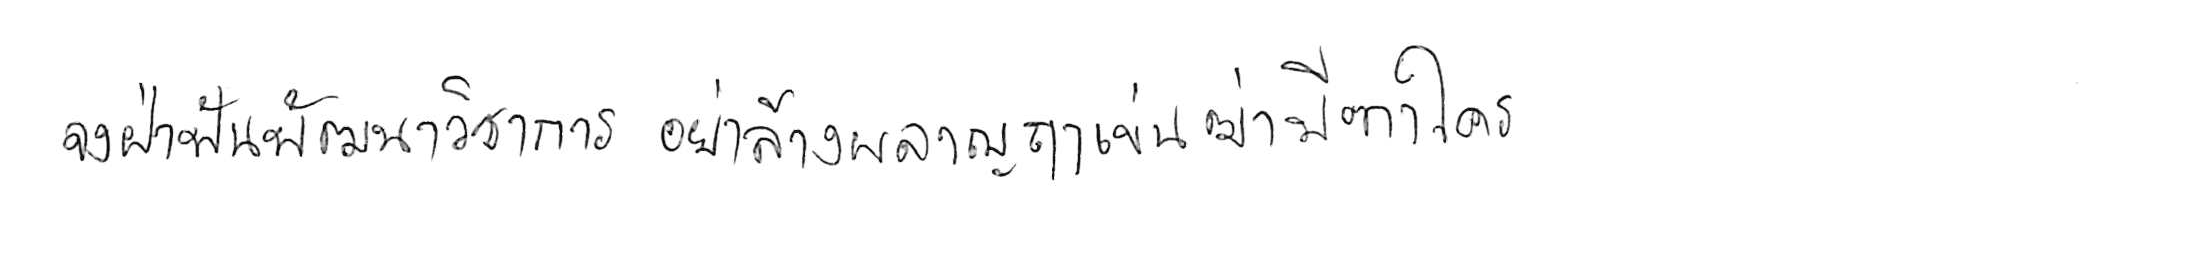 จงฝ่าฟันพัฒนาวิชาการ อย่าล้างผลาญฤๅเข่นฆ่าบีฑาใคร